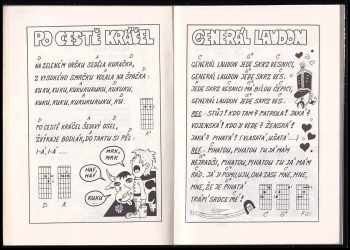 PO CESTĚ KRÁČEL
D
NA ZELENÉM VRŠKU SEDĚLA KUKAČKA,
Z VYSOKÉHO SMRČKU VOLALA NA ŠPAČKA:
KUKU, KUKU, KUKUKUKUKU, KUKU,
KUKU, KUKU, KUKUKUKUKU, KU.
PO CESTĚ KRÁČEL ŠEDIVÝ OSEL,
ŽVÝKAJE BODLÁK, DO TAKTU SI PĚL:
I-Á, I-Á...
MŇK, MŇK
HAF, HAF
KUKU
D
A
GENERÁL LAUDON
GENERÁL LAUDON JEDE SKRZ VESNICI,
GENERÁL LAUDON JEDE SKRZ VES.
JEDE SKRZ VESNICI MÁ BÍLOU ČEPICI,
GENERÁL LAUDON JEDE SKRZ VES.
REC.- STŮJ! KDO TAM? PATROLA! JAKÁ?
VOJENSKÁ! KDO JI VEDE? ŽENSKÁ!
JAKÁ? PIHATÁ! (VLASATÁ, UŠATÁ ...)
REF.- PIHATOU, PIHATOU TU JÁ MÁM
NEJRADŠI, PIHATOU, PIHATOU TU JÁ MÁM
RÁD. JÁ JI POMILUJU, ONA ZASE MNE, MNE,
MNE, ŽE JE PIHATÁ
TRÁM SRDCE MÉ!
C